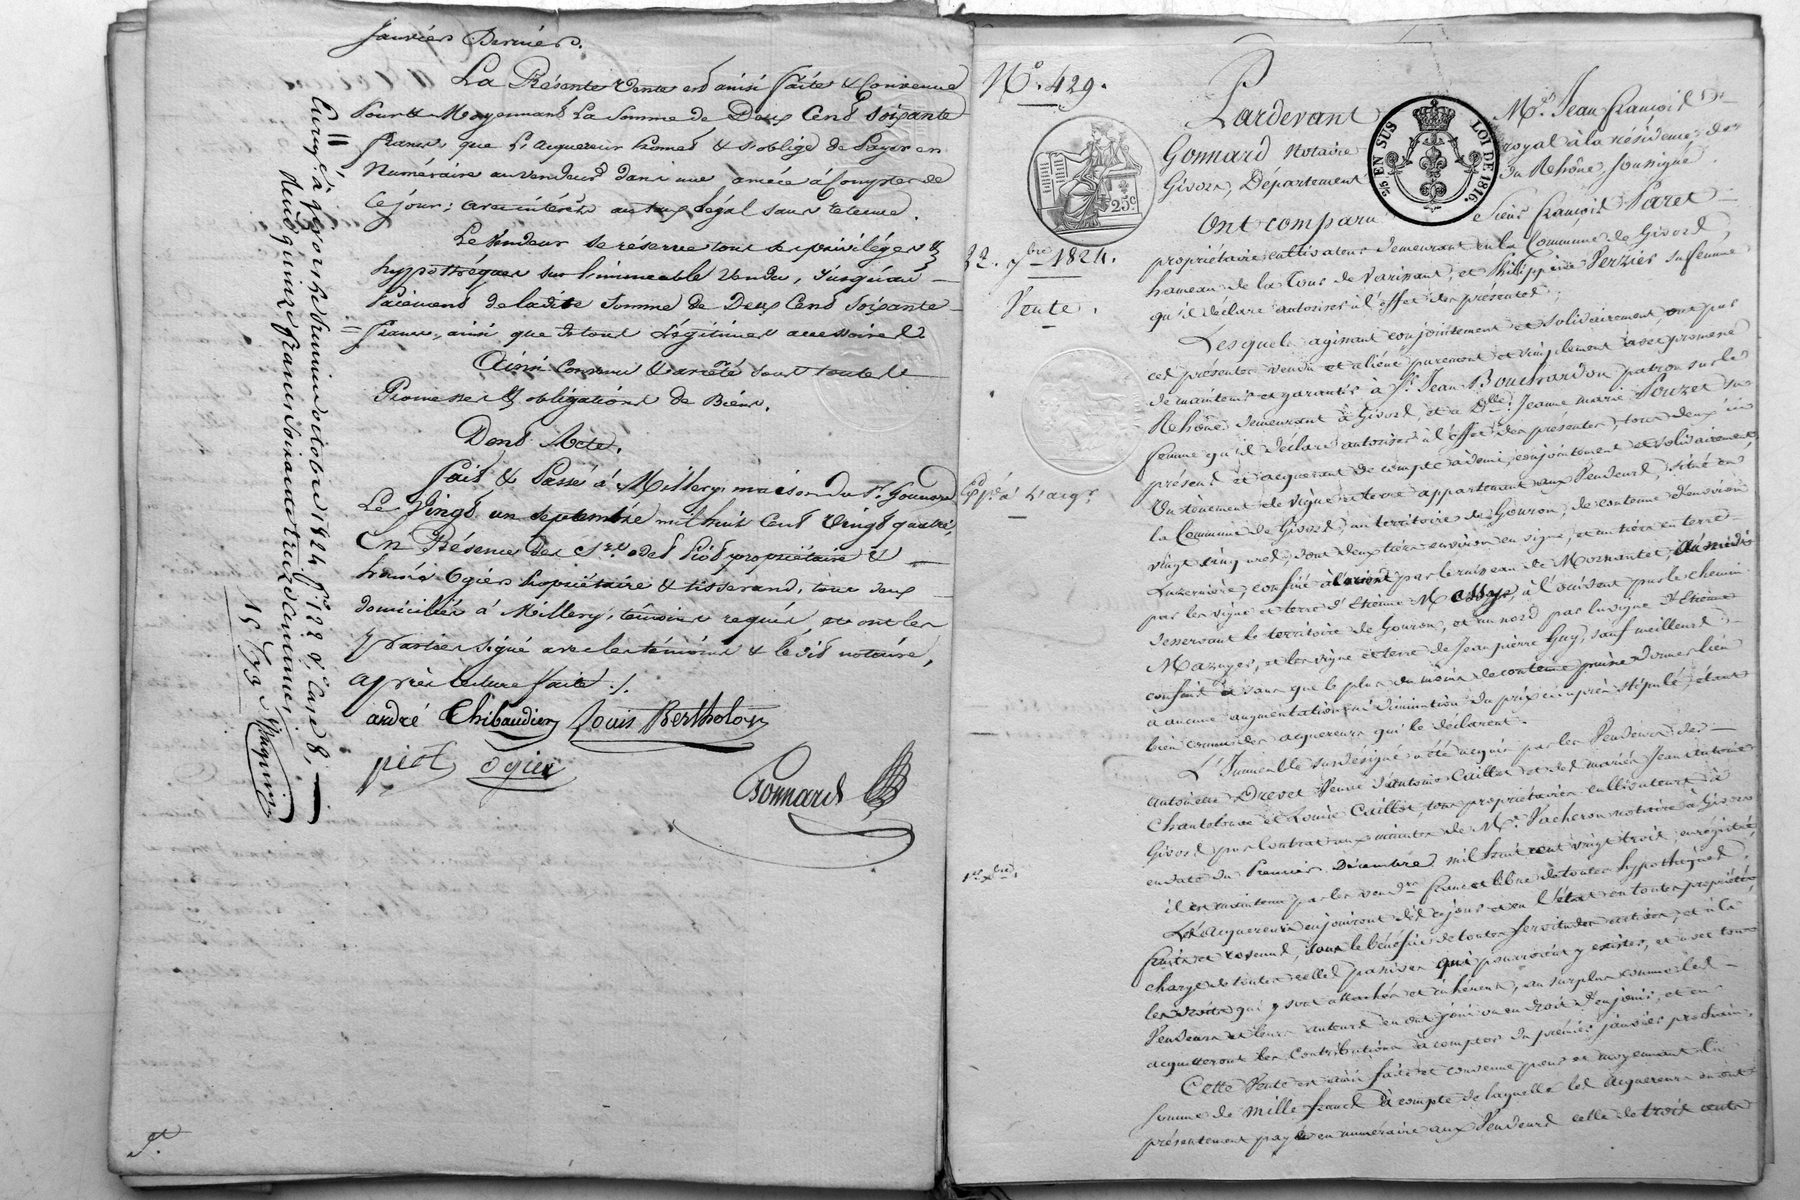 Janvier Dernier.
La Présente vente est ainsi faite & Convenue
Pour & Moyennant La Somme de Deux Cent Soixante
francs que L'acquereur Promet & s'oblige de Payer en
Numéraire au vendeur dans une année à Compter de
Ce jour; avec intérêts au taux légal sans retenue.
Le Vendeur se réserve tout privilège &
hypothèque sur l'immeuble Vendu, Jusqu'au
Paiement de ladite Somme de Deux Cent Soixante
francs, ainsi que de tout Légitimes accessoires
Ainsi Convenu & arrêté sous toutes
Promesses & obligations de Biens.
Dont Acte.
fait & Passé à Millery, maison du Sr. Gonnard
Le Vingt un septembre mil huit Cent Vingt quatre,
En Présence des Srs. Piot propriétaire &
Ogier Propriétaire & tisserand, tous deux
domiciliés à Millery, témoins requis, et ont les
Parties signé avec les témoins & le dit notaire,
après lecture faite ./.
andré Thibaudier Louis Bertholon
piot ogier
Gonnard
Enregé à givors le premier octobre 1824 fo. 122 Ve. Case 8,
quinze francs soixante treize centimes
15 f 73
P.
No. 429.
22. 7bre 1824.
Vente.
Expée à L'acqr
1er Xbre.
25c
25c EN SUS LOI DE 1816.
Pardevant Me. Jean François
Gonnard Notaire royal à la résidence de
Givors, Département du Rhône, soussigné.
Ont comparu Sieur François Paret
propriétaire cultivateur demeurant en la Commune de Givors,
hameau de la Tour de Varissant, et Philippine Verzier sa femme
qu'il déclare autoriser à l'effet des présentes;
Lesquels agissant conjointement et solidairement, ont par
ces présentes vendu et aliéné purement et simplement avec promesse
de maintenir et garantir à Sr. Jean Bouchardon patron sur le
Rhône demeurant à Givors et à Dlle. Jeanne marie Pouzet sa
femme qu'il déclare autoriser à l'effet des présentes, tous deux ici
présents et acquerant de compte à demi, conjointement et solidairement
Un tènement de vigne et terre appartenant aux Vendeurs, situé en
la Commune de Givors, au territoire de Gouron, de contenue d'environ
vingt cinq ares, dont deux tiers environ en vigne, et un tiers en terre
Luzernière; confiné à l'orient par le ruisseau de Mornantet, au midi
par les vigne et terre d'Etienne Massy, à l'occident par le chemin
desservant le territoire de Gouron, et au nord par la vigne d'Etienne
Mazuyer, et les vigne et terre de Jean pierre Guy, sauf meilleurs
confins et sans que le plus ou moins de contenue puisse donner lieu
à aucune augmentation ni diminution du prix ci après stipulé, étant
bien connu des acquereurs qui le déclarent.
L'Immeuble susdésigné a été acquis par les Vendeurs de
antoinette Drevet Veuve d'antoine Caillot et des mariés Jean Antoine
Chantelouve et Louise Caillot, tous propriétaires cultivateurs à
Givors par Contrat aux minutes de Me. Vacheron notaire à Givors
en date du Premier Décembre mil huit cent vingt trois, enregistré
il est maintenu par les vendrs francs et libre de toutes hypothèques.
Les Acquereurs en jouiront dès ce jour et en l'état en toutes propriété
fruits et revenus, sous le bénéfice de toutes servitudes actives, et à la
charge de toutes celles passives qui pourraient y exister, et avec tous
les droits qui y sont attachés et inhérents, au surplus comme les
Vendeurs et leurs auteurs en ont joui ou eu droit d'en jouir, et en
acquitteront les Contributions à compter du premier janvier prochain.
Cette Vente est ainsi faite et convenue pour et moyennant la
somme de mille francs à compte de laquelle les Acquereurs ont
présentement payé en numéraire aux Vendeurs celle de trois cents